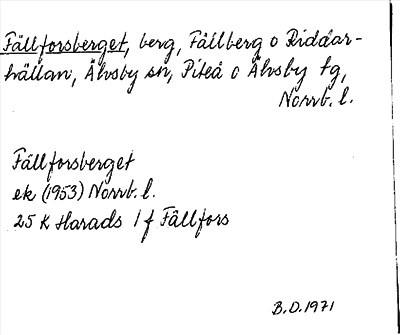 Fällforsberget, berg, Fällberg o Riddar-
hällan, Älvsby sn, Piteå o Älvsby tg,
Norrb. l.
Fällforsberget
ek (1953) Norrb. l.
25 K Harads 1 f Fällfors
B.D. 1971